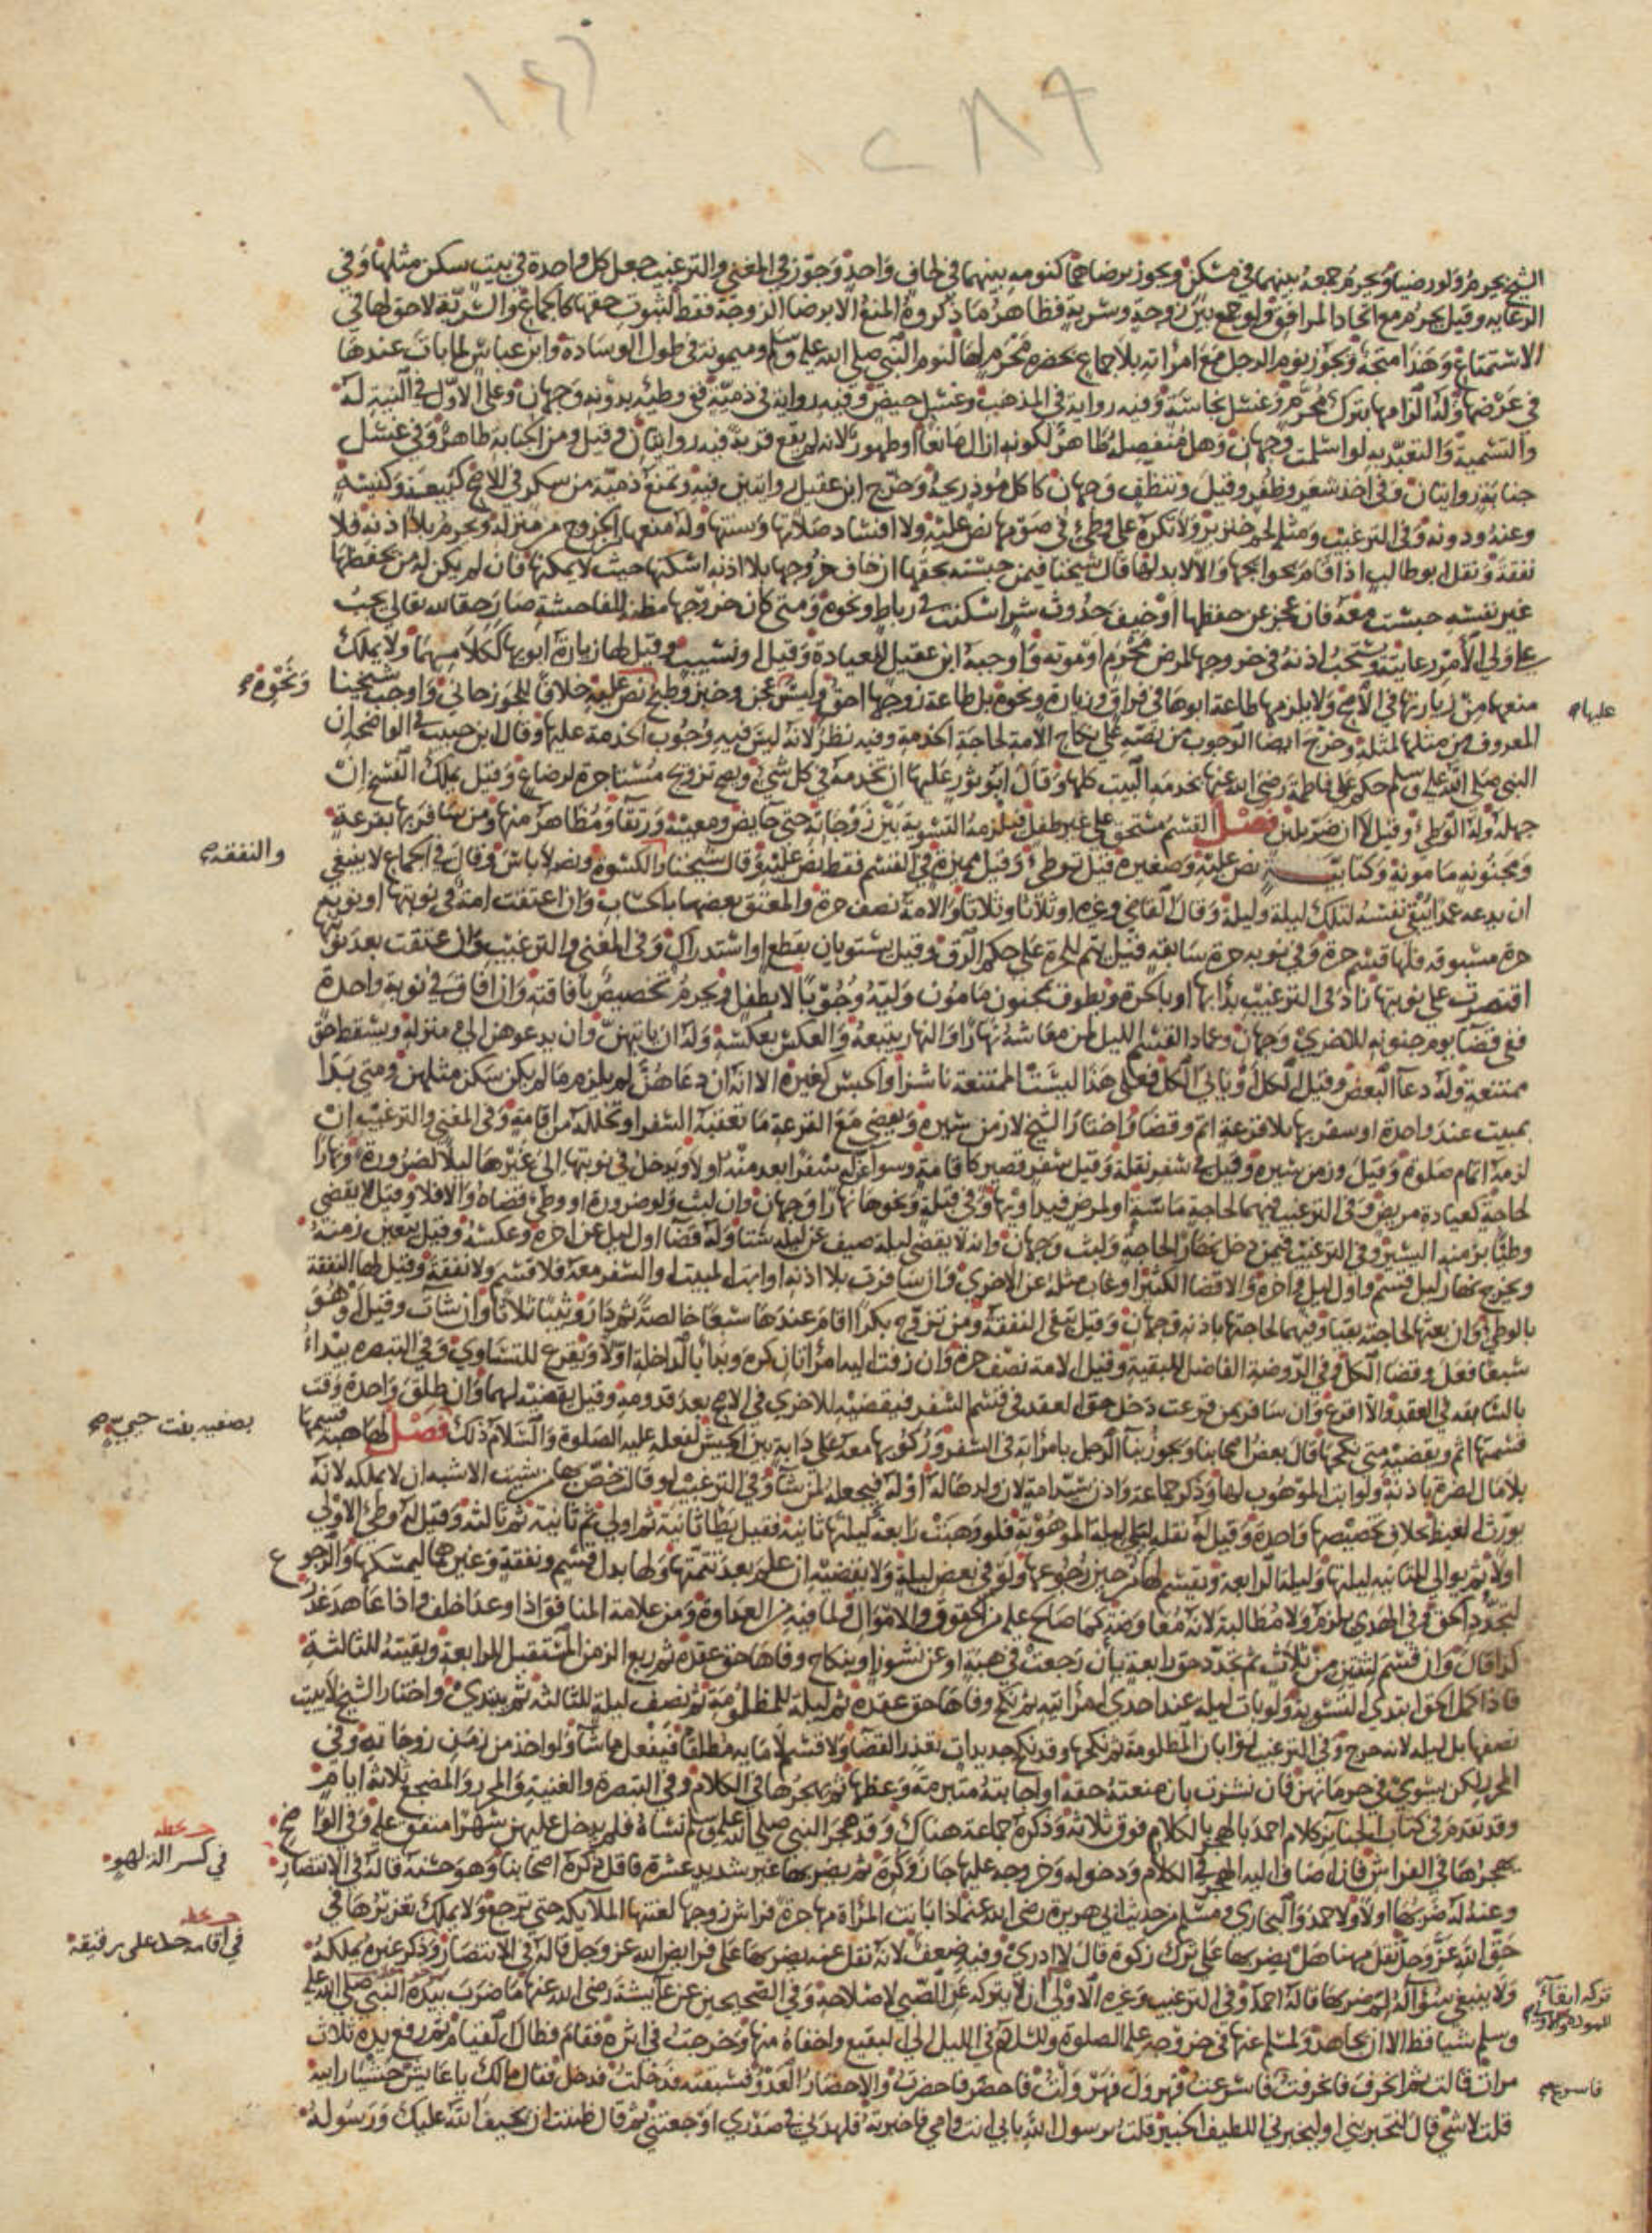 ١٤٦
٢٨٩
الشيخ يحرم ولو رضيا ويحرم جمعه بينهما في مسكن ويجوز برضاهما كنومه بينهما في لحاف واحد وجوز في المغني والترغيب جعل كل واحدة في بيت سكن مثلها وفي
الرعاية وقيل يحرم مع اتحاد المرافق ولو جمع بين زوجة وسرية فظاهر ما ذكروه المنع الا برضا الزوجة فقط لثبوت حقها كالجماع والسرية لا حق لها في
الاستمتاع وهذا متجه ويجوز نوم الرجل مع امراته بلا جماع بحضرة محرم لها لنوم النبي صلى الله عليه وسلم وميمونة في طول الوسادة وابن عباس لما بات عندها
في عرضها وله الزامها بترك محرم وغسل نجاسة وفيه رواية في المذهب وغسل حيض وفيه رواية في ذمية ففي وطئه بدونه وجهان وعلى الاول في النية له
والتسمية والتعبد به لو اسلمت وجهان وهل منفصله طاهر لكونه ازال مانعا او طهور لانه لم يقع قربة فيه روايتان وقيل ومن الجنابة طاهر وفي غسل
جنابة روايتان وفي اخذ شعر وظفر وقيل وتنظف وجهان كاكل موذ ريحه وخرج ابن عقيل روايتين فيه وتمنع ذمية من سكر في الاصح كبيعة وكنيسة
وعنه ودونه وفي الترغيب ومثله لحم خنزير ولا تكره على وطئ في صومها نص عليه ولا افساد صلاتها وسنتها وله منعها الخروج من منزله ويحرم بلا اذنه فلا
نفقة ونقل ابو طالب اذا قام بحوائجها والا لا بد لها قال شيخنا فيمن حبسته بحقها ان خاف خروجها بلا اذنه اسكنها حيث لا يمكنها فان لم يكن له من يحفظها
غير نفسه حبست معه فان عجز عن حفظها او خيف حدوث شر اسكنت في رباط ونحوه ومتى كان خروجها مظنة للفاحشة صار حقا لله تعالى يجب
على ولي الامر رعايته ويستحب اذنه في خروجها لمرض محرم او موته واوجبه ابن عقيل للعيادة وقيل او نسيب وقيل لها زيارة ابويها ككلامهما ولا يملك
منعهما من زيارتها في الاصح ولا يلزمها طاعة ابويها في فراق وزيارة ونحوه بل طاعة زوجها احق وليس عجن وخبز وطبخ نص عليه خلافا للجوزجاني واوجب شيخنا
المعروف من مثلها لمثله وخرج ايضا الوجوب من نصه على نكاح الامة لحاجة الخدمة وفيه نظر لانه ليس فيه وجوب الخدمة عليها وقال ابن حبيب في الواضحة ان
النبي صلى الله عليه وسلم حكم على فاطمة رضي الله عنها بخدمة البيت كلها وقال ابو ثور عليها ان تخدمه في كل شي ويصح تزويج مستاجرة لرضاع وقيل يملك الفسخ ان
جهله وله الوطي وقيل لا ان ضر بلبن فصل القسم مستحق على غير طفل فيلزمه التسوية بين زوجاته حتى حايض ومعيبة ورتقا ومظاهر منها ومن سافر بها بقرعة
ومجنونه مامونة وكتابية نص عليه وصغيرة قيل توطئ وقيل مميزة في القسم فقط نص عليه وقال شيخنا والكسوة ونصه لا باس وقال في الجماع لا ينبغي
ان يدعه عمدا يبقي نفسه لتلك ليلة وليلة وقال القاضي وغيره او ثلاثا وثلاثا والامة نصف حرة والمعتق بعضها بالحساب وان اعتقت امة في نوبتها او نوبة
حرة مسبوقه فلها قسم حرة وفي نوبة حرة سابقة قيل يتم للحرة على حكم الرق وقيل يستويان بقطع او استدراك وفي المغني والترغيب وان عتقت بعد نوبتها
اقتصرت على نوبتها زاد في الترغيب بدا بها او بالحرة ويطوف بمجنون مامون وليه وجوبا لا بطفل ويحرم تخصيص بافاقته وان افاق في نوبة واحدة
ففي قضا يوم جنونه للاخرى وجهان وعماد القسم الليل لمن معاشه نهارا والنهار يتبعه والعكس بعكسه وله ان ياتيهن وان يدعوهن الى منزله ويسقط حق
ممتنعة وله دعا البعض وقيل الكل او ياتي الكل فعلى هذا ليست الممتنعة ناشزا والحبس كغيره الا انه ان دعاهن لم يلزم ما لم يكن سكن مثلهن ومتى بدا
بمبيت عند واحدة او سفر بها بلا قرعة اثم وقضا واختار الشيخ لا زمن سيره ويقضي مع القرعة ما تعقبه السفر او تخلله من اقامة وفي المغني والترغيب ان
لزمه اتمام صلوة وقيل وزمن سيره وقيل في سفر نقلة وقيل سفر قصير كاقامة وسوا عن له سفر ابعد منه او لا ويدخل في نوبتها الى غيرها ليلا لضرورة ونهارا
لحاجة كعيادة مريض وفي الترغيب فيهما لحاجة ماسة او لمرض فيداويها وفي قبلة ونحوها نهارا وجهان وان لبث ولو ضرورة او وطئ قضاه والا فلا وقيل لا يقضي
وطئا بزمنه اليسير وفي الترغيب فيمن دخل نهارا لحاجة ولبث وجهان وانه لا يقضي ليلة صيف عن ليلة شتا وله قضا اول ليل عن اخره وعكسه وقيل يتعين زمنه
ويخرج نهار ليل قسم واول ليل واخره والا قضا الكثير او غاب مثله عن الاخرى وان سافرت بلا اذنه او ابت المبيت او السفر معه فلا قسم ولا نفقة وقيل لها النفقة
بالوطئ وان بعثها لحاجته بقيا وفيهما لحاجتها باذنه وجهان وقيل تبقى النفقة ومن تزوج بكرا اقام عندها سبعا خالصة ثم دار وثيبا ثلاثا وان شات وقيل او هو
سبعا فعل وقضا الكل وفي الروضة الفاضل للبقية وقيل الامة نصف حرة وان زفت اليه امراتان كره وبدا بالداخلة اولا ويقرع للتساوي وفي التبصرة يبدا
بالسابقة في العقد والا اقرع وان سافر بمن قرعت دخل حق العقد في قسم السفر فيقضيه للاخرى في الاصح بعد قدومه وقيل يقضيه لهما وان طلق واحدة وقت
قسمتها اثم ويقضيه متى نكحها قال بعض اصحابنا ويجوز بنا الرجل بامراته في السفر وركوبها معه على دابة بين الجيش لفعله عليه الصلوة والسلام ذلك فصل لها هبة قسمها
بلا مال لضرة باذنه ولو ابت الموهوب لها وذكر جماعة واذن سيد امة لان ولدها له او له فيجعله لمن شا وفي الترغيب لو قال خص بها من شيت الاشبه ان لا يملكه لانه
يورث الغيظ بخلاف تخصيصها واحدة وقيل له نقله ليلي ليلة الموهوبة فلو وهبت رابعة ليلتها ثانية فقيل يطا ثانية ثم اولى ثم ثانية ثم ثالثة وقيل له وطئ الاولى
اولا ثم يوالي للثانية ليلتها وليلة الرابعة ويقسم لها من حين رجوعها ولو في بعض ليلة ولا يقضيه ان علم بعد تتمتها ولها بدل قسم ونفقة وغيرهما ليمسكها والرجوع
لتجدد الحق وفي الهدي يلزم ولا مطالبة لانه معاوضة كما صالح عليه من الحقوق والاموال ولما فيه من العداوة ومن علامة المنافق اذا وعد اخلف واذا عاهد غدر
كذا قال وان قسم لثنتين من ثلاث ثم تجدد حق رابعة بان رجعت في هبة او عن نشوز او بنكاح وفاها حق عقده ثم ربع الزمن المستقبل للرابعة وبقيته للثالثة
فاذا كمل الحق ابتدى التسوية ولو بات ليلة عند احدى امراتيه ثم نكح وفاها حق عقده ثم ليلة للمظلومة ثم نصف ليلة للثالثة ثم يبتدئ واختار الشيخ لا يبيت
نصفها بل ليلة لانه حرج وفي الترغيب لو ابان المظلومة ثم نكحها وقد نكح جديدات تعذر القضا ولا قسم لامائه مطلقا فيفعل ما شا ولو اخذ من زمن زوجاته وفي
المحرر لكن يسوي في حرمانهن فان نشزت بان منعته حقه او اجابته متبرمة وعظها ثم يهجرها في الكلام وفي التبصرة والغنية والمحرر والمضجع ثلاثة ايام
وقد تقدم في كتاب الجنايز كلام احمد بالهجر بالكلام فوق ثلاثة وذكره جماعة هناك وقد هجر النبي صلى الله عليه وسلم نساه فلم يدخل عليهن شهرا متفق عليه وفي الواضح
يهجرها في الفراش فان اضاف اليه الهجر في الكلام ودخوله وخروجه عليها جاز وكره ثم يضربها غير شديد عشرة فاقل ذكره اصحابنا وهو حسنة قاله في الانتصار
وعنه له ضربها اولا ولاحمد والبخاري ومسلم من حديث ابي هريرة رضي الله عنه اذا باتت المراة مهاجرة فراش زوجها لعنتها الملايكة حتى ترجع ولا يملك تعزيرها في
حق الله عز وجل نقل مهنا هل يضربها على ترك زكوة قال لا ادري وفيه ضعف لانه نقل عنه يضربها على فرايض الله عز وجل قاله في الانتصار وذكر غيره يملكه
ولا ينبغي سؤاله لم ضربها قاله احمد وفي الترغيب وغيره الاولى ان لا يتركه عن الصبي لاصلاحه وفي الصحيحين عن عائشة رضي الله عنها ما ضرب بيده النبي صلى الله عليه
وسلم شيا قط الا ان يجاهد ولمسلم عنها في خروجه عليه الصلوة والسلام في الليل الى البقيع واخفاه منها وخرجت في اثره فقام فطال القيام ثم رفع يده ثلاث
مرات قالت ثم انحرف فانحرفت فاسرعت فهرول فهرولت فاحضر فاحضرت والاحضار العدو فسبقته فدخلت فدخل فقال مالك يا عايش حشيا رابية
قلت لا شي قال لتخبرنني او ليخبرني اللطيف الخبير قلت يرسول الله بابي انت وامي فاخبرته فلهدني في صدري اوجعتني ثم قال ظننت ان يحيف الله عليك ورسوله
عليها
ونحوه
والنفقه
بصفيه بنت حيي
في كسر اله لهو
في اقامة حد على رقيقه
تركه ابقاء للمودة والاولى
فاسرع